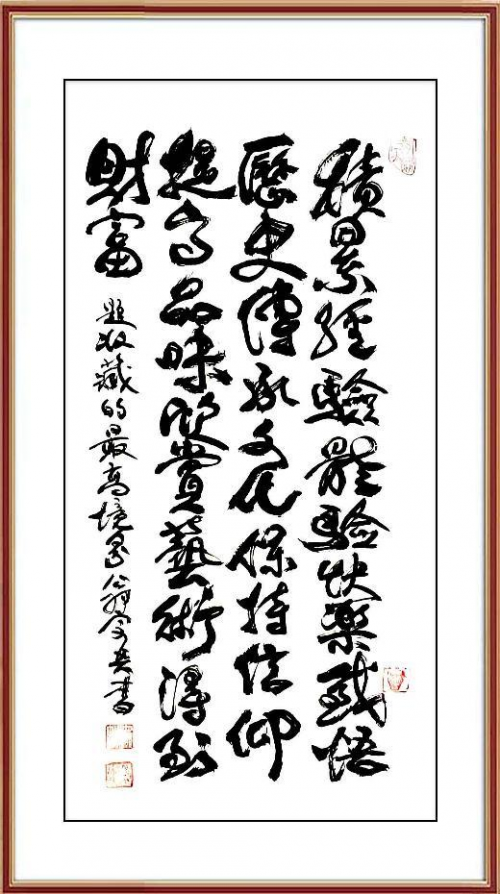 積累經驗體驗快樂感悟
歷史傳承文化保持信仰
提高品味賞藝術得到
財富
題收藏的最高境界書